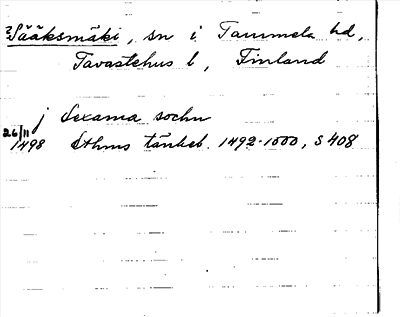 ?Sääksmäki, sn i Tammela hd,
Tavastehus l, Finland
j Sexama sochn
26/11 1498 Sthms tänkeb. 1492-1500, S 408